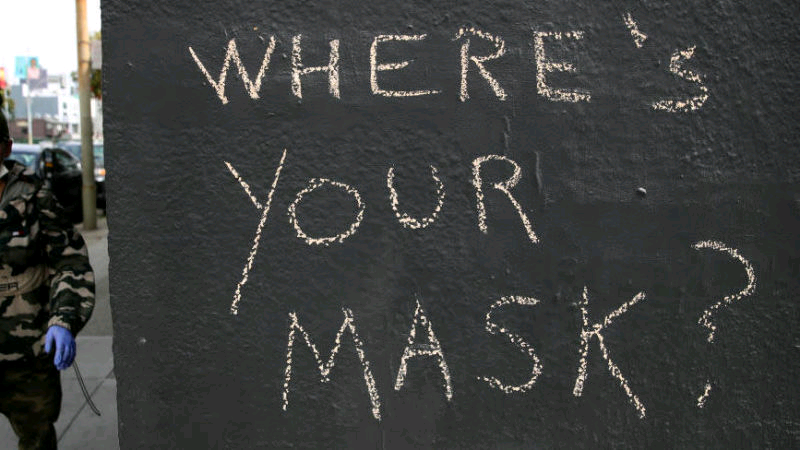 WHERE's
YOUR
MASK?